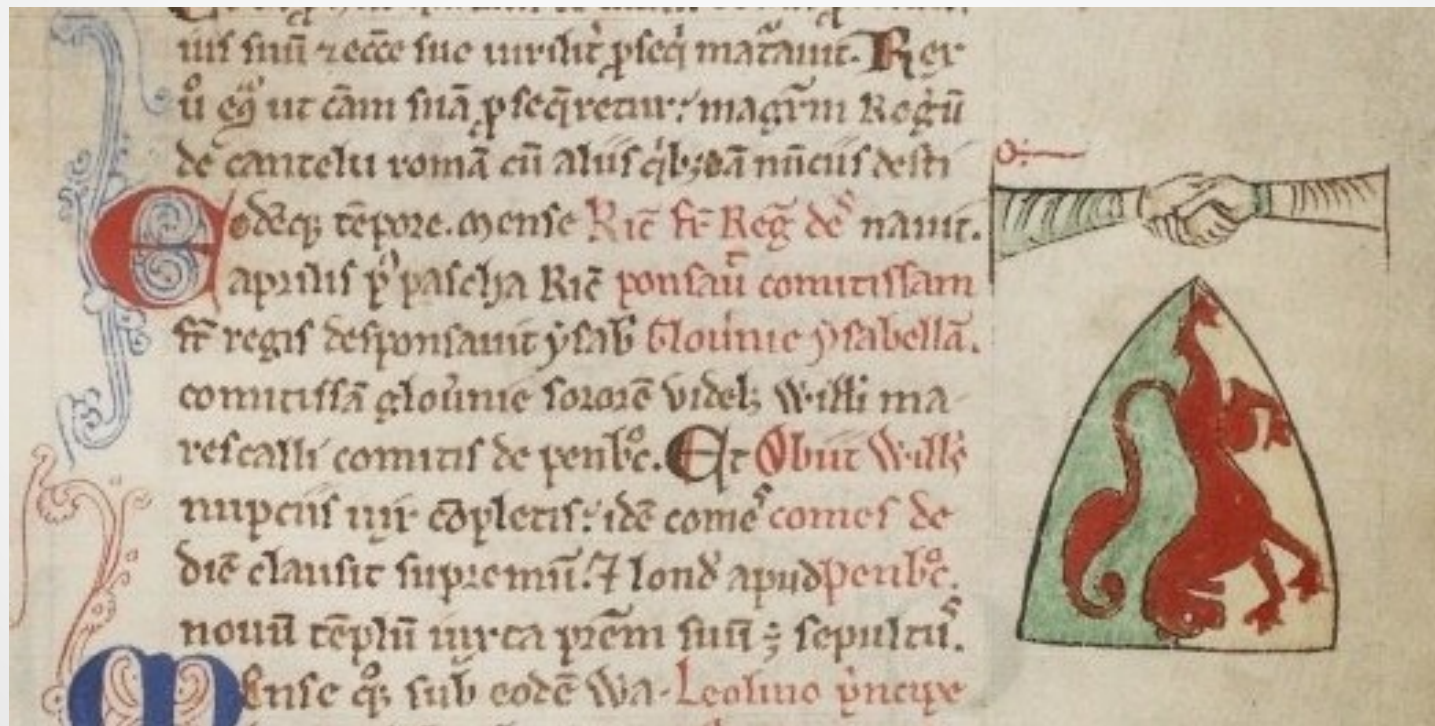 uis suū ⁊ ecc̄e sue uirilit̾ ꝓseq̄ Rex
u͛o ut cām suā ꝓseq̄retur; magr̄m Rogū
de cantelu romā cū aliis nūciis desti
Eodēq; tēpore. mense Ric̄ fr̄ Reḡ des nauit.
aprilis pꝰ pascha Ric̄ ponsau͛t comitissam
fr̄ regis desponsauit ysab̄ Glou͛nie ysabellā.
comitissā glou͛nie sororē videlꝫ Willi ma-
rescalli comitis de penb͛oc. Et Obiit Wills̄
nupciis uix cōpletis; idē comes comes de
diē clausit supremū. ⁊ lond̄ apud penb͛oc.
nouū tēplū iuxta pr̄em suū; sepultꝰ.
Mense qꝫ sub̄ eodē Wa- Leolino p͛ncipe